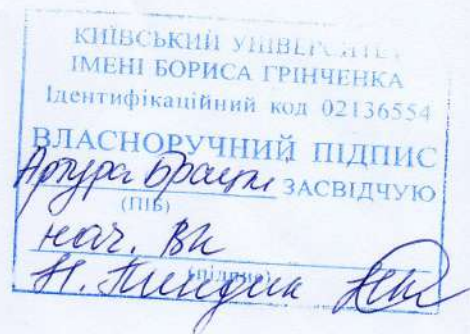 КИЇВСЬКИЙ УНІВЕРСИТЕТ
ІМЕНІ БОРИСА ГРІНЧЕНКА
Ідентифікаційний код 02136554
ВЛАСНОРУЧНИЙ ПІДПИС
Артура ЗАСВІДЧУЮ
(ПІБ)
нач. ВК
(підпис)
Н.